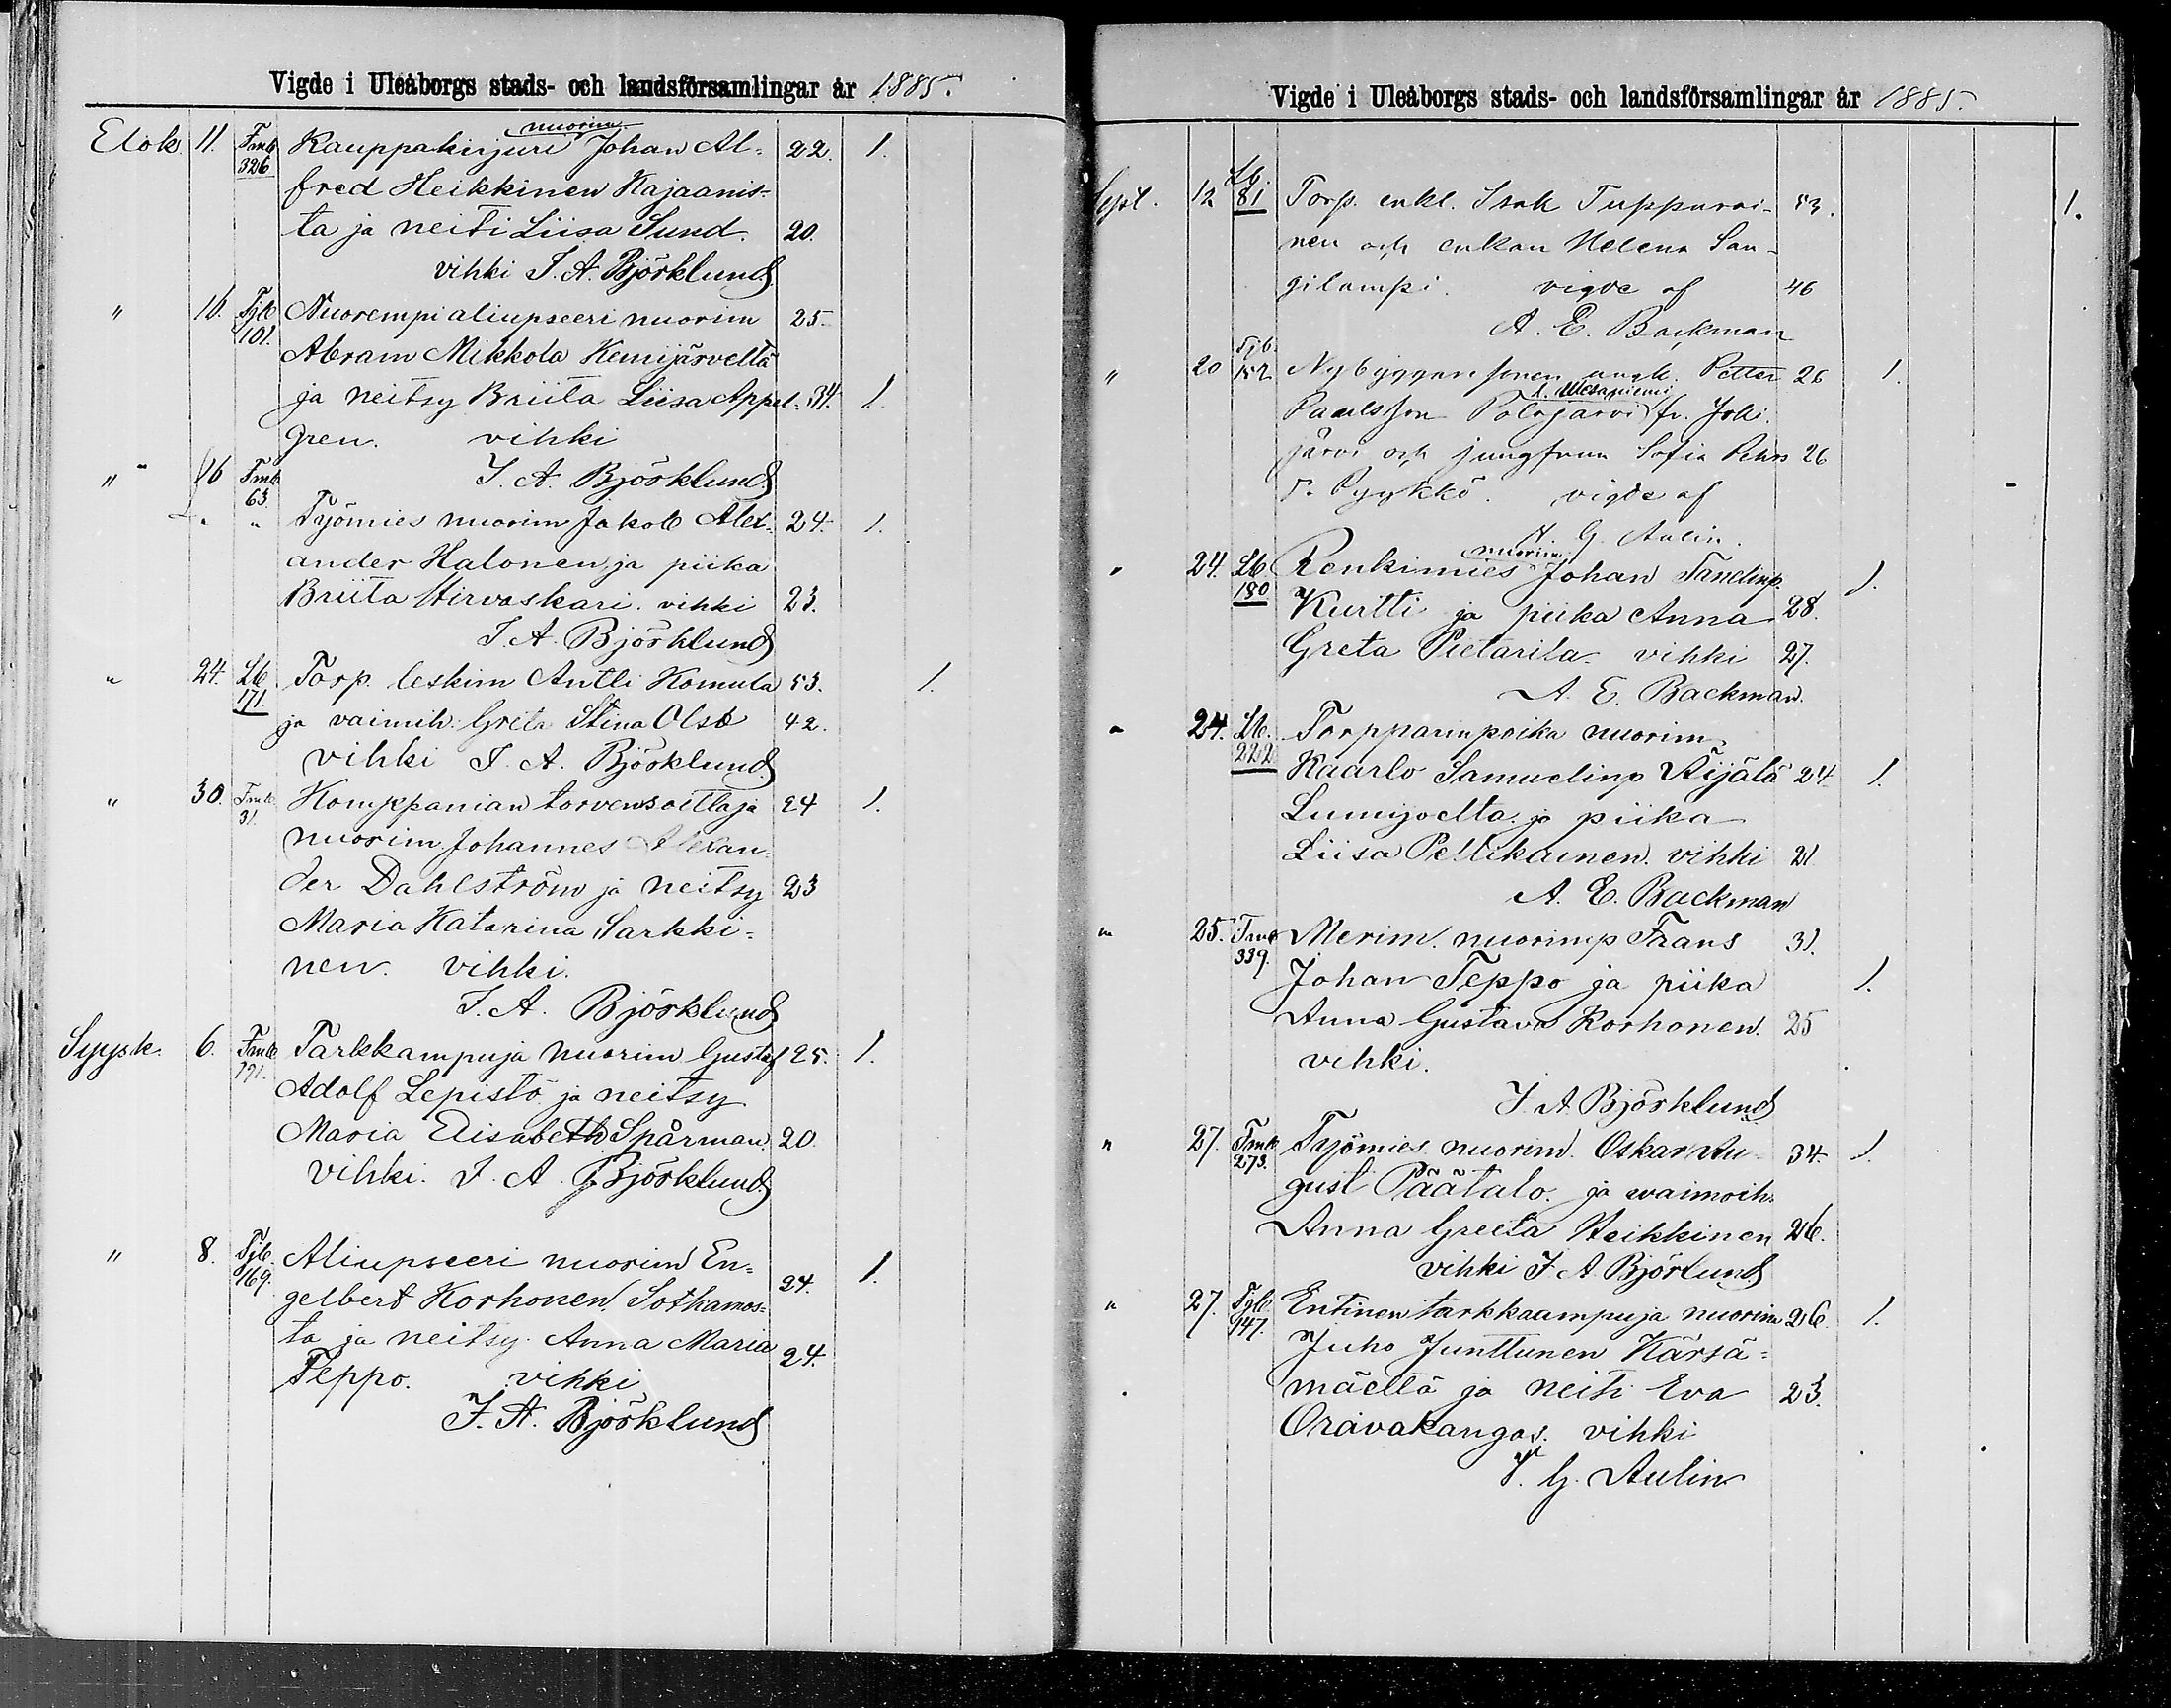 Vigde i Uleåborgs stads- och landsförsamlingar år 1885.
Elok. 11. Fmb 326 Kauppakirjuri nuorim. Johan Al= 22. 1.
fred Heikkinen Kajaanis=
ta ja neiti Liisa Sund. 20.
vihki J. A. Björklund
" 16. Fjb 101. Nuorempi aliupseeri nuorim 25.
Abram Mikkola Kemijärveltä
ja neitsy Briita Liisa Appel= 34. 1.
gren. vihki
" 16 Fmb 63. J. A. Björklund
" Työmies nuorim Jakob Alex= 24. 1.
ander Halonen ja piika
Briita Hirvaskari. vihki 23.
J. A. Björklund
" 24. Lb. 171. Torp. leskim Antti Komula 53. 1.
ja vaimih. Greta Stina Olsb 42.
vihki J. A. Björklund
" 30. Fmb. 31. Komppanian torvensoittaja 24 1.
nuorim Johannes Alexan=
der Dahlström ja neitsy 23
Maria Katarina Sarkki=
nen. vihki.
J. A. Björklund
Syysk. 6. Fmb 191. Tarkkampuja nuorim Gustaf 25. 1.
Adolf Lepistö ja neitsy
Maria Elisabeth Spårman. 20.
vihki. J. A. Björklund
" 8. Fjb. 169. Aliupseeri nuorim En= 24. 1.
gelbert Korhonen Sotkamos=
ta ja neitsy Anna Maria 24.
Teppo. vihki
J. A. Björklund
Vigde i Uleåborgs stads- och landsförsamlingar år 1885.
Sept. 12 Lb. 81 Torp. enkl. Isak Tuppurai- 53. 1.
nen och enkan Helena San-
gilampi. vigde af 46
A. E. Backman
" 20 Fjb. 152 Nybyggaresonen ungk. Petter 26 1.
Paulsson Polojärvi l. Mesaniemi fr. Joki
järvi och jungfrun Sofia Pehrs 26
d. Pyykkö. vigde af
J. G. Aulin.
" 24. Lb. 180 Renkimies nuorim. Johan Tanelinp. 1.
Kurtti ja piika Anna 28.
Greta Pietarila. vihki 27.
A. E. Backman.
" 24. Lb. 222 Torpparinpoika nuorim
Kaarlo Samuelinp Äijälä 24 1.
Lumijoelta ja piika
Liisa Pellikainen. vihki 21
A. E. Backman
" 25. Fmb 339. Merim. nuorimp Frans 31.
Johan Teppo ja piika 1.
Anna Gustava Korhonen. 25
vihki.
J. A. Björklund
" 27. Fmb. 273. Työmies nuorim. Oskar Au- 34. 1.
gust Päätalo. ja vaimoih.
Anna Greeta Heikkinen 26.
vihki J. A. Björlund
" 27. Fjb. 147. Entinen tarkkaampuja nuorim 26. 1.
Juho Junttunen Kärsä=
mäeltä ja neiti Eva 23.
Oravakangas. vihki
J. G. Aulin